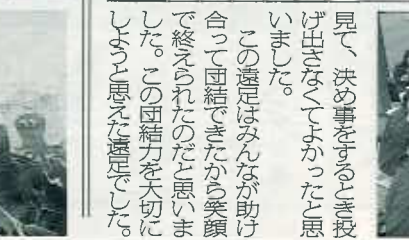 見て、決め事をするとき投
げ出さなくてよかったと思
いました。
　この遠足はみんなが助け
合って団結できたから笑顔
で終えられたのだと思いま
した。この団結力を大切に
しようと思えた遠足でした。